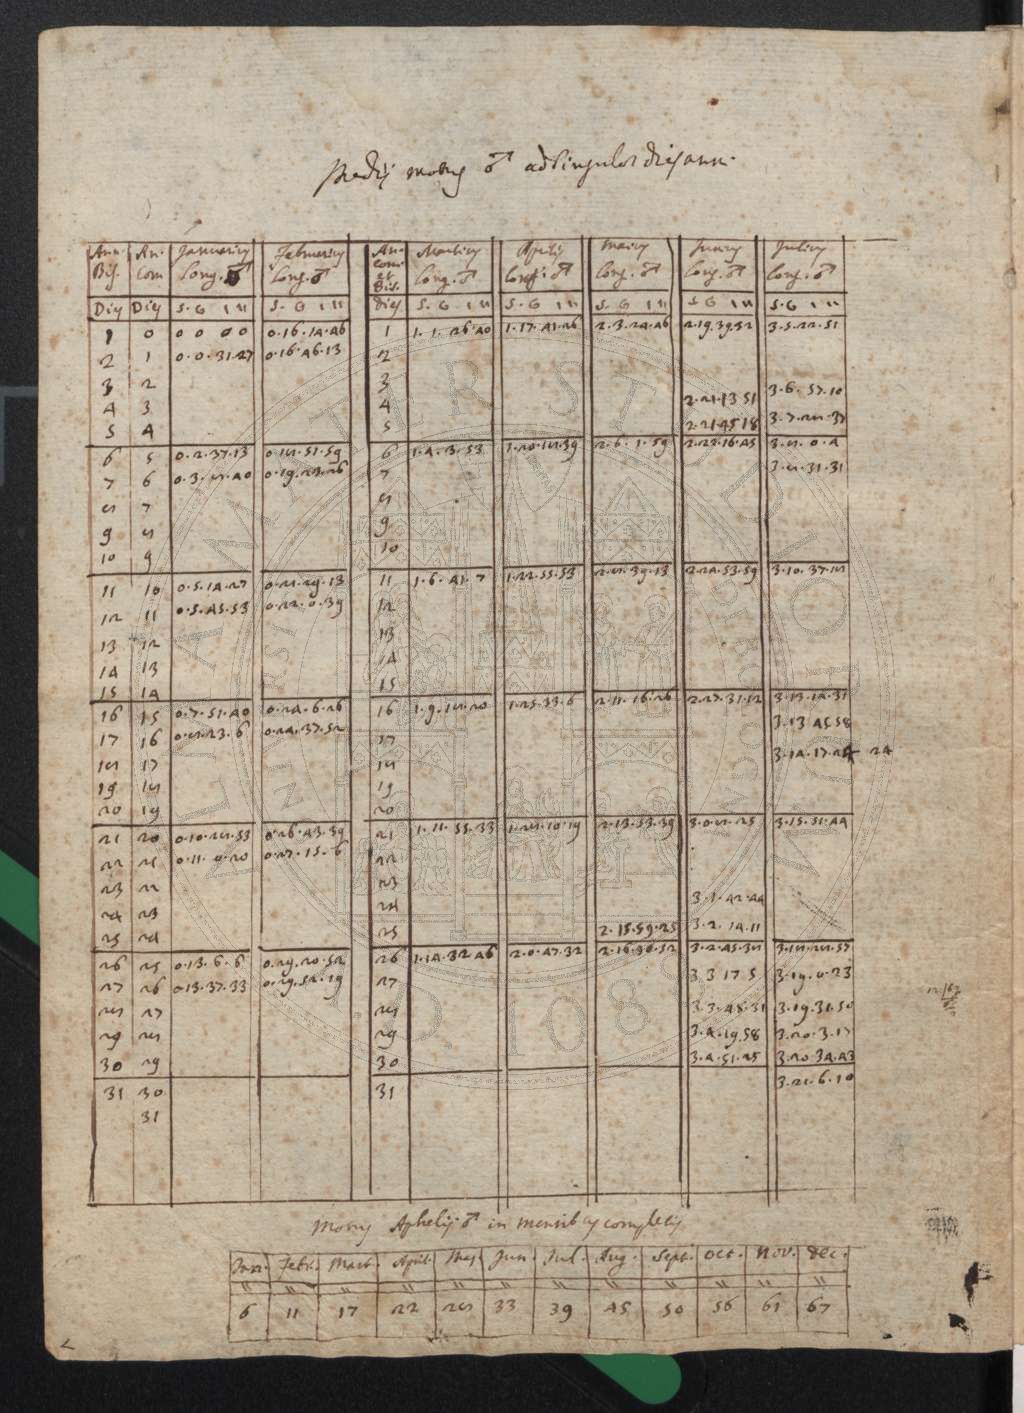 Medij motus ♂ ad singulos dies anni.
Ann. An. Januarius Februarius An. Martius Aprilis Maius Junius Julius
Bis. Com Long. ♂ Long. ♂ com. et Bis. Long. ♂ Long. ♂ Long. ♂ Long. ♂ Long. ♂
Dies Dies S. G ı ıı S. G ı ıı dies S. G ı ıı S. G ı ıı S. G ı ıı S G ı ıı S. G ı ıı
1 0 0 0 0 0 0.16.14.46 1 1.1.26.40 1.17.41.26 2.3.24.46 2.19.39.32 3.5.22.51
2 1 0.0.31.27 0.16.46.13 2
3 2 3 3.6.57.10
4 3 4 2.21.13.51
5 4 5 2.21.45.18 3.7.28.37
6 5 0.2.37.13 0.18.51.59 6 1.4.3.53 1.20.18.39 2.6.1.59 2.22.16.45 3.8.0.4
7 6 0.3.8.40 0.19.23.26 7 3.8.31.31
8 7 8
9 8 9
10 9 10
11 10 0.5.14.27 0.21.29.13 11 1.6.41.7 1.22.55.53 2.8.39.13 2.24.53.59 3.10.37.18
12 11 0.5.45.53 0.22.0.39 12
13 12 13
14 13 14
15 14 15
16 15 0.7.51.40 0.24.6.26 16 1.9.18.20 1.25.33.6 2.11.16.26 2.27.31.12 3.13.14.31
17 16 0.8.23.6 0.24.37.52 17 3.13.45.58
18 17 18 3.14.17.24 24
19 18 19
20 19 20
21 20 0.10.28.53 0.26.43.39 21 1.11.55.33 1.28.10.19 2.13.53.39 3.0.8.25 3.15.51.44
22 21 0.11.0.20 0.27.15.6 22
23 22 23
24 23 24 3.1.42.44
25 24 25 2.15.59.25 3.2.14.11
26 25 0.13.6.6 0.29.20.52 26 1.14.32.46 2.0.47.32 2.16.30.52 3.2.45.38 3.18.28.57
27 26 0.13.37.33 0.29.52.19 27 3 3 17 5 3.19.0.23
28 27 28 3.3.48.31 3.19.31.50
29 28 29 3.4.19.58 3.20.3.17
30 29 30 3.4.51.25 3.20.34.43
31 30 31 3.21.6.10
31
Motus Aphelij ♂ in mensibus completis
Jan. Febr. Mart. April. Maj. Jun. Jul. Aug. Sept. Oct. Nov. Dec.
ıı ıı ıı ıı ıı ıı ıı ıı ıı ıı ıı ıı
6 11 17 22 28 33 39 45 50 56 61 67